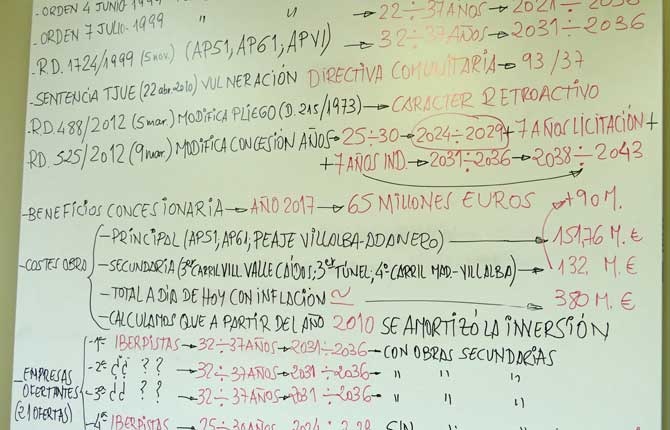 -ORDEN 4 JUNIO 1999 " " → 22÷37 AÑOS → 2021÷2036
-ORDEN 7 JULIO-1999 " " → 32÷37 AÑOS → 2031÷2036
-R.D. 1724/1999 (5 nov.) (AP51, AP61, APVI)
-SENTENCIA TJUE (22 abr. 2010) VULNERACIÓN DIRECTIVA COMUNITARIA → 93/37
-RD. 488/2012 (5 mar.) MODIFICA PLIEGO (D. 215/1973) → CARACTER RETROACTIVO
RD. 525/2012 (9 mar.) MODIFICA CONCESIÓN AÑOS → 25÷30 → 2024÷2029 + 7 AÑOS LICITACIÓN +
+ 7 AÑOS IND. → 2031÷2036 → 2038÷2043
-BENEFICIOS CONCESIONARIA → AÑO 2017 → 65 MILLONES EUROS +90 M.
-COSTES OBRA
-PRINCIPAL (AP51, AP61, PEAJE VILLALBA-ADANERO) → 151,76 M. €
-SECUNDARIA (3er CARRIL VILL. VALLE CAÍDOS; 3er TÚNEL; 4º CARRIL MAD.-VILLALBA) → 132, M. €
-TOTAL A DIA DE HOY CON INFLACIÓN ≃ → 380 M. €
-CALCULAMOS QUE A PARTIR DEL AÑO 2010 SE AMORTIZÓ LA INVERSIÓN
-EMPRESAS OFERTANTES (21 OFERTAS)
-1ª IBERPISTAS → 32÷37 AÑOS → 2031÷2036 - CON OBRAS SECUNDARIAS
-2ª ¿¿ ?? → 32÷37 AÑOS → 2031÷2036 - " " "
-3ª ¿¿ ?? → 32÷37 AÑOS → 2031÷2036 - " " "
-4ª IBERPISTAS → 25÷30 AÑOS SIN